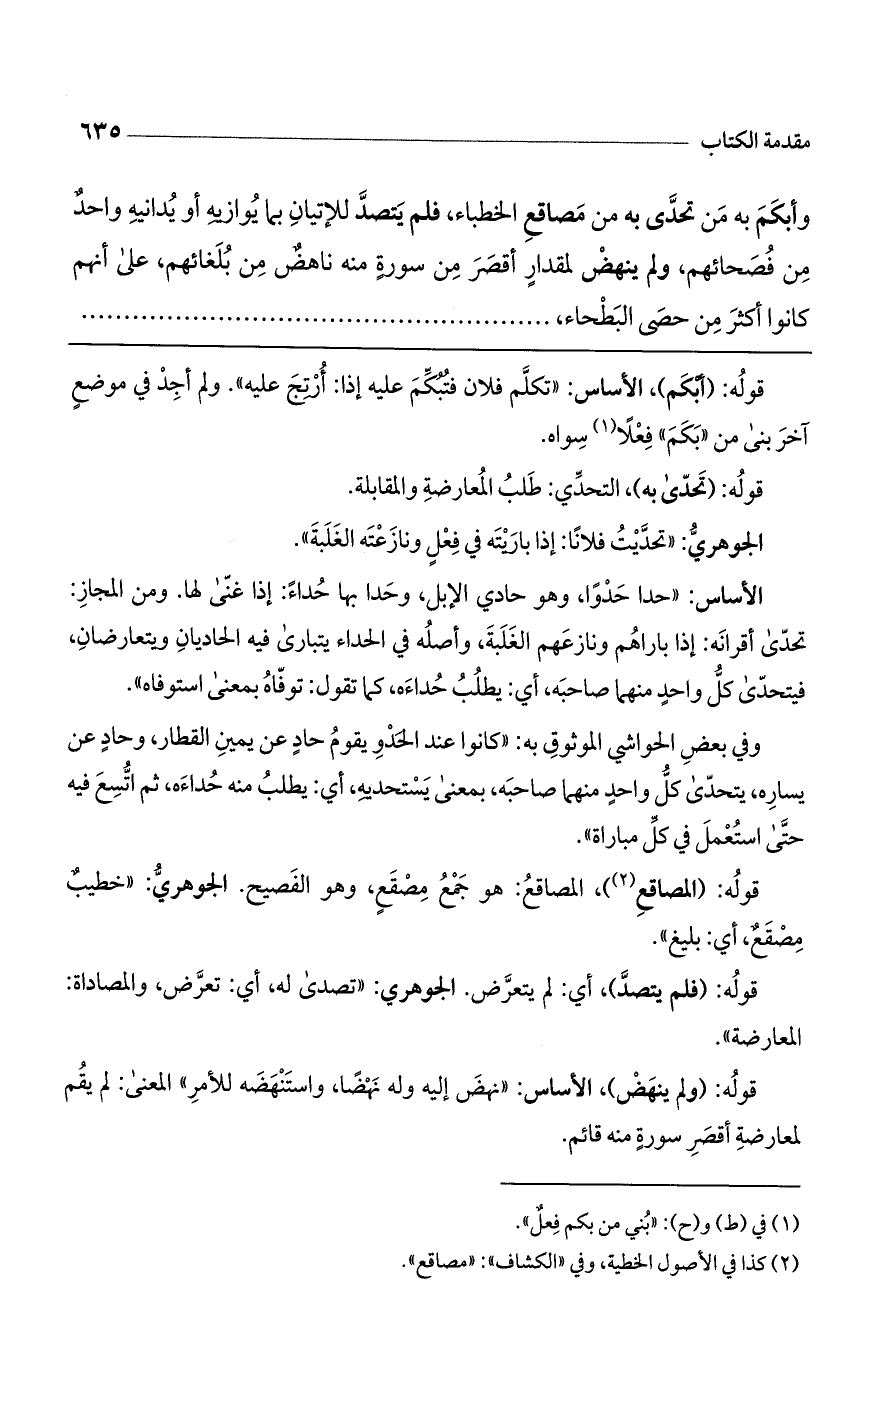 مقدمة الكتاب ــــــــــــــــــــ ٦٣٥
وأبكَمَ به مَن تحدَّى به من مَصاقعِ الخطباء، فلم يَتصدَّ للإتيانِ بما يُوازيهِ أو يُدانيهِ واحدٌ
مِن فُصَحائهم، ولم ينهضْ لمقدارِ أقصَرَ مِن سورةٍ منه ناهضٌ مِن بُلَغائهم، علىٰ أنهم
كانوا أكثرَ مِن حصَى البَطْحاء، ....................................................
قولُه: (أبْكَم)، الأساس: «تكلَّم فلان فتُبُكِّمَ عليه إذا: أُرْتِجَ عليه». ولم أجِدْ في موضعٍ
آخرَ بنىٰ من «بَكَمَ» فِعْلًا(١) سِواه.
قولُه: (تَحَدّىٰ به)، التحدِّي: طَلَبُ المُعارضةِ والمقابلة.
الجوهريُّ: «تحدَّيْتُ فلانًا: إذا بارَيْتَه في فِعْلٍ ونازَعْتَه الغَلَبَةَ».
الأساس: «حدا حَدْوًا، وهو حادي الإبل، وحَدا بها حُداءً: إذا غنّىٰ لها. ومن المجازِ:
تحدّىٰ أقرانَه: إذا باراهُم ونازعَهم الغَلَبَةَ، وأصلُه في الحداء يتبارىٰ فيه الحاديانِ ويتعارضانِ،
فيتحدّىٰ كلُّ واحدٍ منهما صاحبَه، أي: يطلُبُ حُداءَه، كما تقول: توفّاهُ بمعنىٰ استوفاه».
وفي بعضِ الحواشي الموثوقِ به: «كانوا عند الحَدْوِ يقومُ حادٍ عن يمينِ القطار، وحادٍ عن
يسارِه، يتحدّىٰ كلُّ واحدٍ منهما صاحبَه، بمعنىٰ يَسْتحديهِ، أي: يطلبُ منه حُداءَه، ثم اتُّسِعَ فيه
حتَّىٰ استُعْملَ في كلِّ مباراة».
قولُه: (المصاقعِ(٢))، المصاقعُ: هو جَمْعُ مِصْقَعٍ، وهو الفَصيح. الجوهريُّ: «خطيبٌ
مِصْقَعٌ، أي: بليغ».
قولُه: (فلم يتصدَّ)، أي: لم يتعرَّض. الجوهري: «تصدىٰ له، أي: تعرَّض، والمصاداة:
المعارضة».
قولُه: (ولم ينهَضْ)، الأساس: «نهضَ إليه وله نَهْضًا، واستَنْهَضَه للأمرِ» المعنىٰ: لم يقُم
لمعارضةِ أقصَرِ سورةٍ منه قائم.
(١) في (ط) و(ح): «بُني من بكم فِعلٌ».
(٢) كذا في الأصول الخطية، وفي «الكشاف»: «مصاقع».